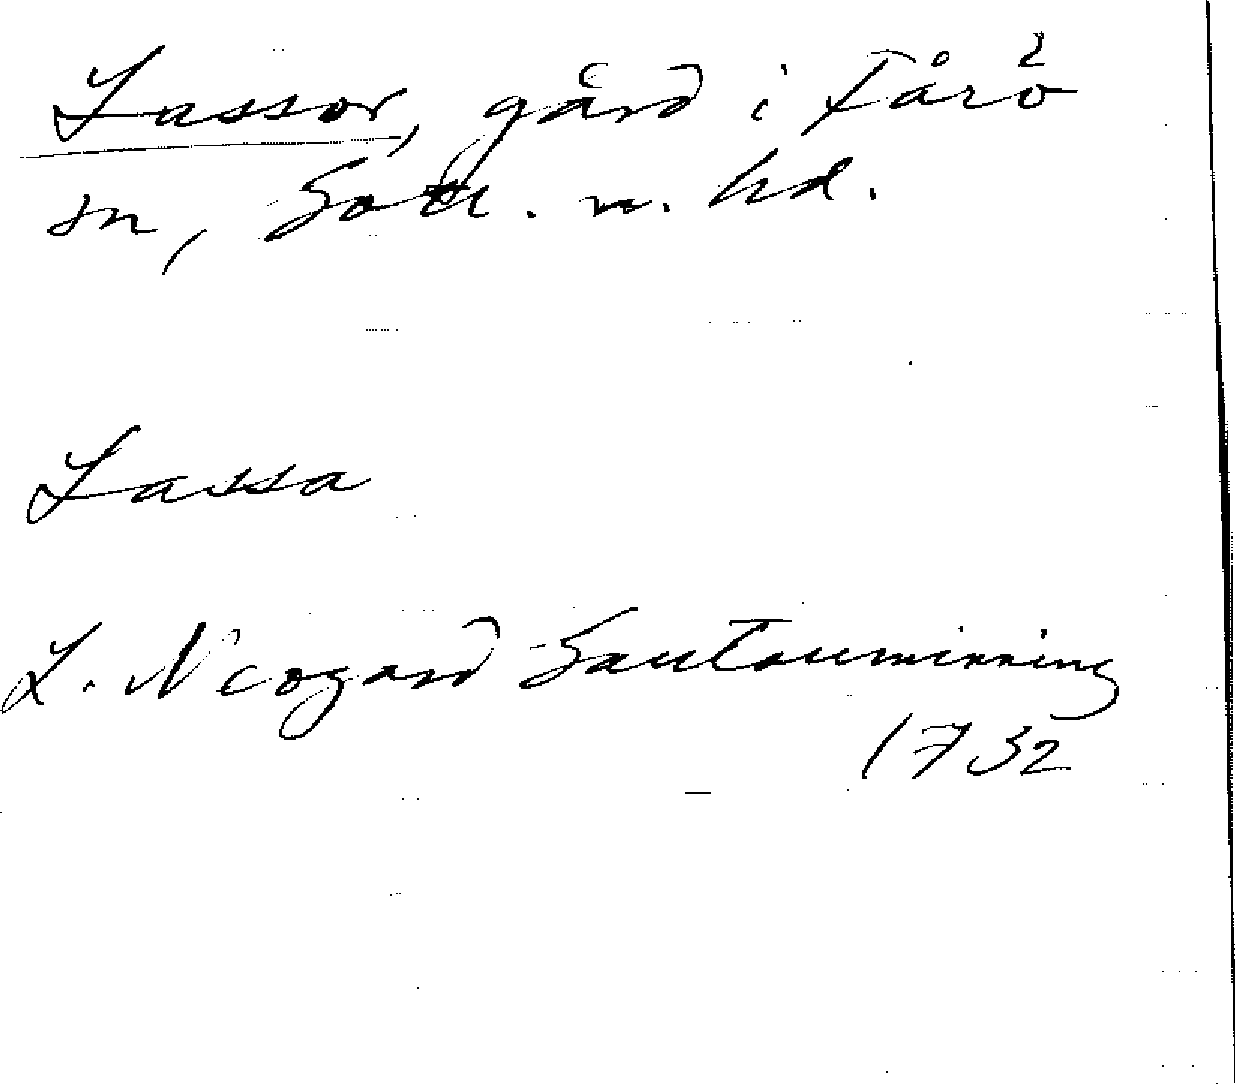 Lassor, gård i Fårö
sn, Gotl. n. hd.
Lassa
L. Neogard Gautauminning
1732